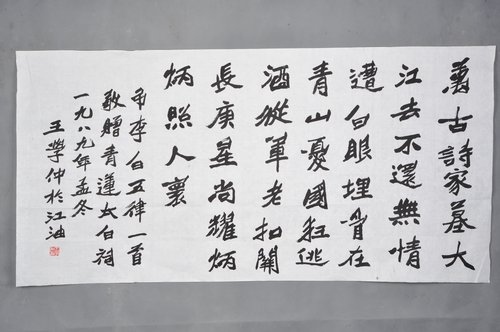 萬古詩家墓大
江去不還無情
遭白眼埋骨在
青山憂國狂逃
酒從軍老扣關
長庚星尚耀炳
炳照人寰
弔李白五律一首
敬贈青蓮太白祠
一九八九年孟冬
王學仲於江油